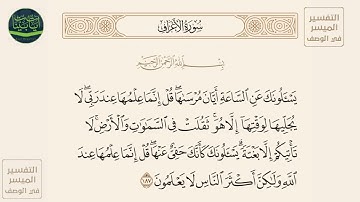 التفسير
الميسر
في الوصف
سورة الأعراف
بِسْمِ اللَّهِ الرَّحْمَٰنِ الرَّحِيمِ
يَسْـَٔلُونَكَ عَنِ ٱلسَّاعَةِ أَيَّانَ مُرْسَىٰهَا ۖ قُلْ إِنَّمَا عِلْمُهَا عِندَ رَبِّى ۖ لَا
يُجَلِّيهَا لِوَقْتِهَآ إِلَّا هُوَ ۚ ثَقُلَتْ فِى ٱلسَّمَٰوَٰتِ وَٱلْأَرْضِ ۚ لَا
تَأْتِيكُمْ إِلَّا بَغْتَةً ۗ يَسْـَٔلُونَكَ كَأَنَّكَ حَفِىٌّ عَنْهَا ۖ قُلْ إِنَّمَا عِلْمُهَا عِندَ
ٱللَّهِ وَلَٰكِنَّ أَكْثَرَ ٱلنَّاسِ لَا يَعْلَمُونَ ١٨٧
التفسير
الميسر
في الوصف